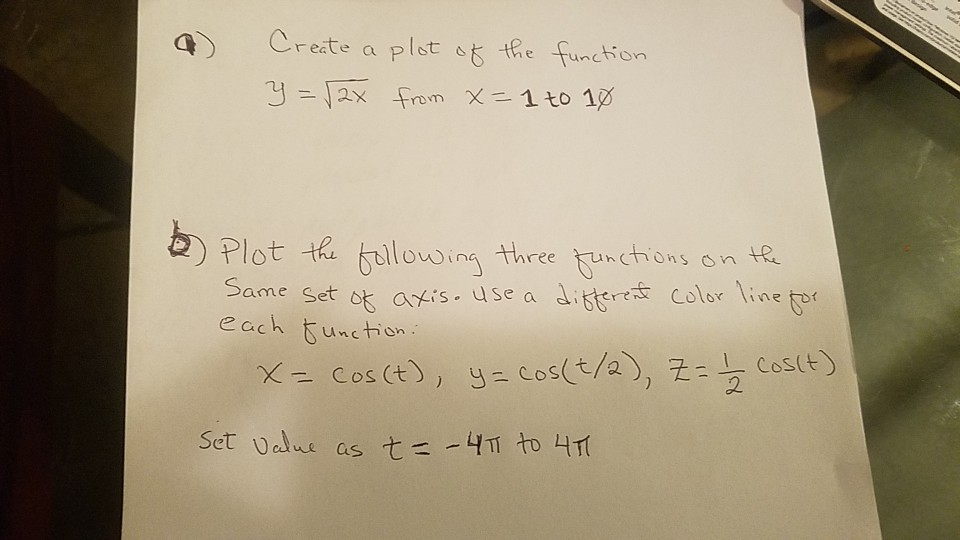 a) Create a plot of the function
y = √2x from x = 1 to 10
b) Plot the following three functions on the
Same set of axis. Use a different color line for
each function:
x = cos(t), y = cos(t/2), z = 1/2 cos(t)
Set value as t = -4π to 4π